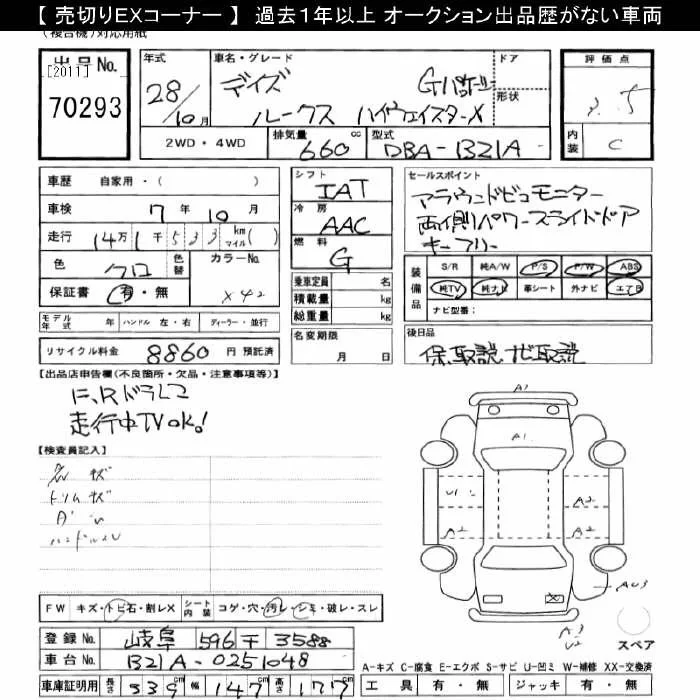 【 売切りEXコーナー 】 過去1年以上 オークション出品歴がない車両
(複合機)対応用紙
出品No.
[2011]
70293
年式 28/10月
車名・グレード デイズルークス ハイウェイスターX Gパッケージ
ドア
形状
評価点 3.5
内装 C
2WD・4WD 排気量 660 cc 型式 DBA-B21A
車歴 自家用・( )
車検 7年 10月
走行 14万1千533 km マイル( )
色 クロ 色替 カラーNo. X42
保証書 有・無
モデル年式 年 ハンドル 左・右 ディーラー・並行
リサイクル料金 8860 円 預託済
シフト IAT
冷房 AAC
燃料 G
乗車定員 名
積載量 kg
総重量 kg
名変期限 月 日
セールスポイント
アラウンドビュモニター
両側パワースライドドア
キーフリー
装備品 S/R 純A/W P/S P/W ABS
純TV 純ナビ 革シート 外ナビ エアB
ナビ型番:
後日品
保、取説、ナビ取説
【出品店申告欄(不良箇所・欠品・注意事項等)】
に、Rドラレコ
走行中TVOK!
【検査員記入】
トリムキズ
FW キズ・トビ石・割レX シート内装 コゲ・穴・汚レ・シミ・破レ・スレ
登録No. 岐阜 596 千 3588
車台No. B21A-0251048
車庫証明用 長さ 339cm 幅 147cm 高さ 177cm
A1
A1
U1
A2
A2
A2
AU3
A3
U2
スペア
A-キズ C-腐食 E-エクボ S-サビ U-凹ミ W-補修 XX-交換済
工具 有・無 ジャッキ 有・無